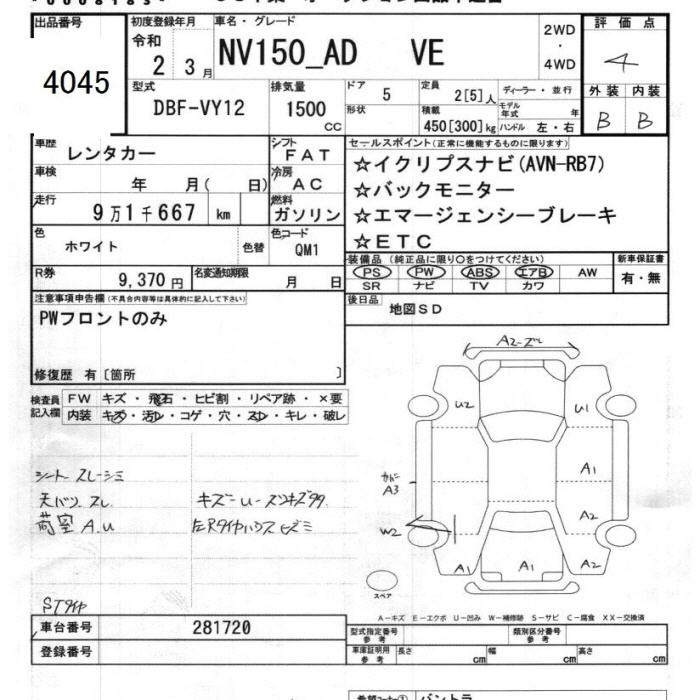 出品番号 初度登録年月 車名・グレード 2WD ・ 4WD 評価点
4045 令和 2 3月 NV150_AD VE 4
型式 排気量 ドア 5 定員 2[5]人 ディーラー・並行 外装 内装
DBF-VY12 1500 CC 形状 積載 450[300]kg モデル年式 年 ハンドル 左・右 B B
車歴 レンタカー シフト FAT セールスポイント(正常に機能するものに限ります)
車検 年 月( 日) 冷房 AC ☆イクリプスナビ(AVN-RB7)
走行 9万1千667 km 燃料 ガソリン ☆バックモニター
☆エマージェンシーブレーキ
色 ホワイト 色替 色コード QM1 ☆ETC
装備品(純正品に限り○をつけてください) 新車保証書
R券 9,370円 名変通知期限 月 日 PS PW ABS エアB AW 有・無
SR ナビ TV カワ
注意事項申告欄(不具合内容等は具体的に記入して下さい) 後日品 地図SD
PWフロントのみ
修復歴 有〔箇所 〕
検査員記入欄 FW キズ・飛石・ヒビ割・リペア跡・×要
内装 キズ・汚レ・コゲ・穴・スレ・キレ・破レ
A2-ズレ
U2 U1
カバー A3 A1
W2 A2
A1 A1 A2
スペア
シート スレ-シミ
天バリ スレ
荷室 A.U
STタイヤ
A-キズ E-エクボ U-凹み W-補修跡 S-サビ C-腐食 XX-交換済
車台番号 281720 型式指定番号 参考 類別区分番号 参考
登録番号 車庫証明用 参考 長さ cm 幅 cm 高さ cm
希望コーナー① バントラ